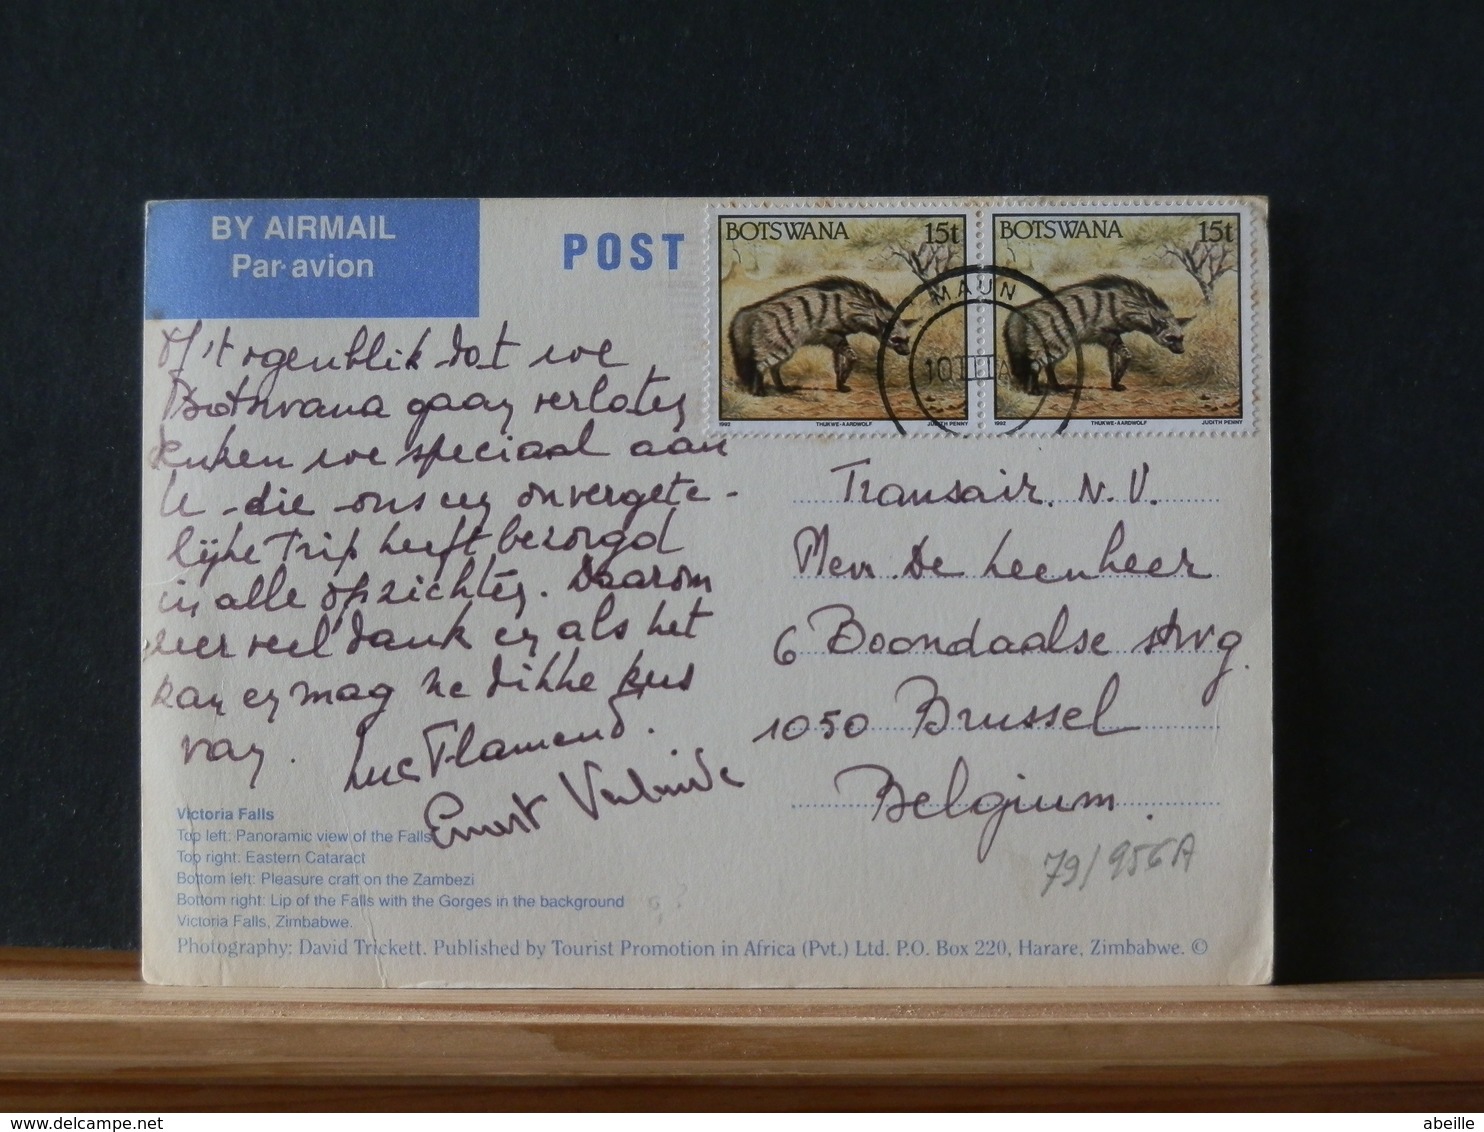 BY AIRMAIL
Par avion
POST
BOTSWANA 15t
1992 THUKWE-AARDWOLF JUDITH PENNY
BOTSWANA 15t
1992 THUKWE-AARDWOLF JUDITH PENNY
MAUN
10
Op 't ogenblik dat we
Botswana gaan verlaten
denken we speciaal aan
U die ons een onvergete-
lijke Trip heeft bezorgd
in alle opzichten. Daarom
zeer veel dank en als het
kan en mag ne dikke kus
van. Luc Flamend.
Ernest
Transair. N.V.
Mevr. De Leenheer
6 Boondaalse stwg.
1050 Brussel
Belgium.
79/956A
Victoria Falls
Top left: Panoramic view of the Falls
Top right: Eastern Cataract
Bottom left: Pleasure craft on the Zambezi
Bottom right: Lip of the Falls with the Gorges in the background
Victoria Falls, Zimbabwe.
Photography: David Trickett. Published by Tourist Promotion in Africa (Pvt.) Ltd. P.O. Box 220, Harare, Zimbabwe. ©
delcampe.net
abeille